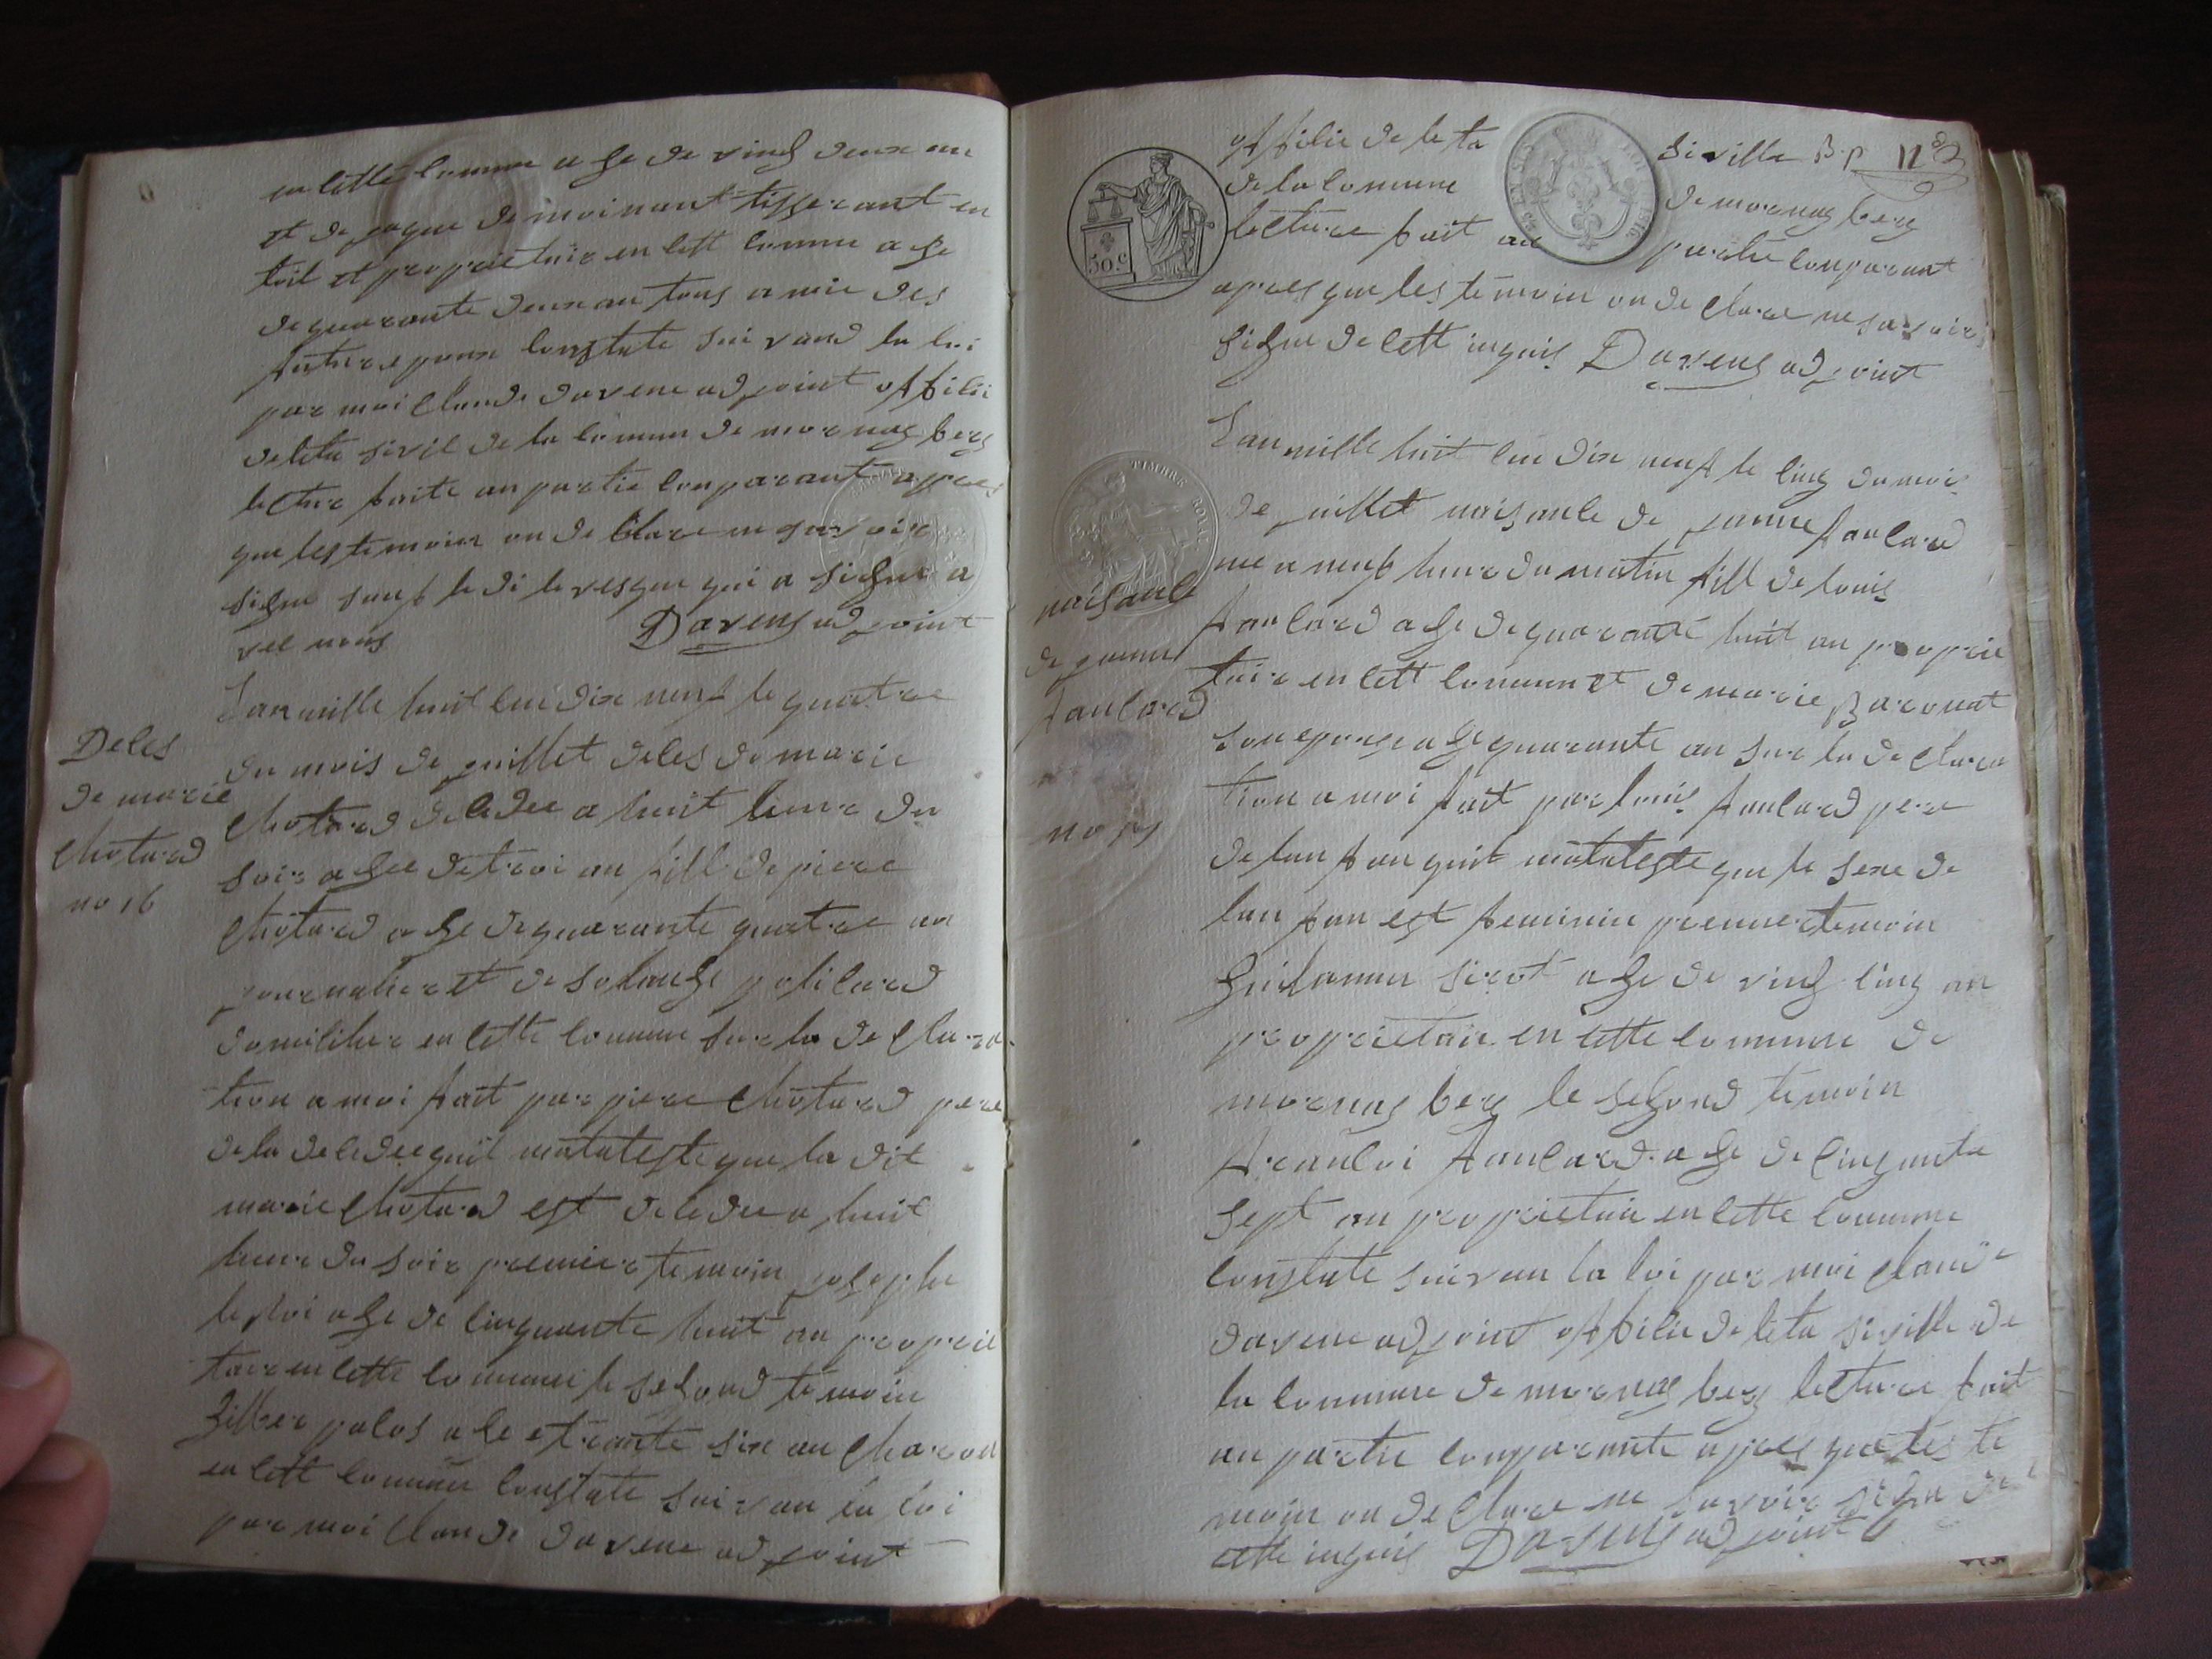 en cette comune a ge de vinch deux an
et de jaque de moinaut tisserant en
toil et proprietair en cett comune a ge
de quarante deux an tous a mie des
futur epoux constate suivand la loi
par moi Claude davene adjoint officie
de leta sivil de la comun de mornag berg
lecture faite au partie comparant apres
que les temoin on de Clare ne savoir
signe sauf le di levesque qui a signe a
vec nous Davene adjoint
Lan mille huit cen dix neuf le quatre
du mois de juillet deces de marie
Chotard decedee a huit heure du
soir a gee de troi an fill de piere
Chotard a ge de quarante quatre an
journalier et de solange policard
domicilier en cette comune sur la de Clara
tion a moi fait par piere Chotard pere
de la decedee quil matateste que la dit
marie Chotard est decedee a huit
heure du soir premier temoin joseph
le roi a ge de cinquante huit an proprie
tair en cette comune le segond temoin
Gilber palos a ge trante six an Charon
en cett comune constate suivan la loi
par moi Claude davene adjoint
Deces
de marie
Chotard
no 16
officie de leta siville B.P 12
de la comune de mornag berg
lecture fait au partie comparant
apres que les temoin on de Clare ne savoir
signe de cett inquis Davene adjoint
Lan mille huit cen dix neuf le cinq du mois
de juillet naisance de janne faucard
nee a neuf heure du matin fill de louis
faucard a ge de quarante huit an proprie
tair en cett comune et de marie Baronat
son epouse a ge quarante an sur la de Clara
tion a moi fait par louis faucard pere
de lan fan quil matateste que le sexe de
lan fan est feminin premier temoin
Guilaumm sirot a ge de vinch cinq an
proprietair en cette comune de
mornag berg le segond temoin
francoi faucard a ge de cinquante
sept an proprietair en cette comune
constate suivan la loi par moi Claude
davene adjoint officie de leta siville de
la comune de mornag berg lecture fait
au partie comparante apres que les te
moin on de Clare ne savoir signe de
cette inquis Davene adjoint
naisance
de janne
faucard
no 17
50.c
TIMBRE ROYAL